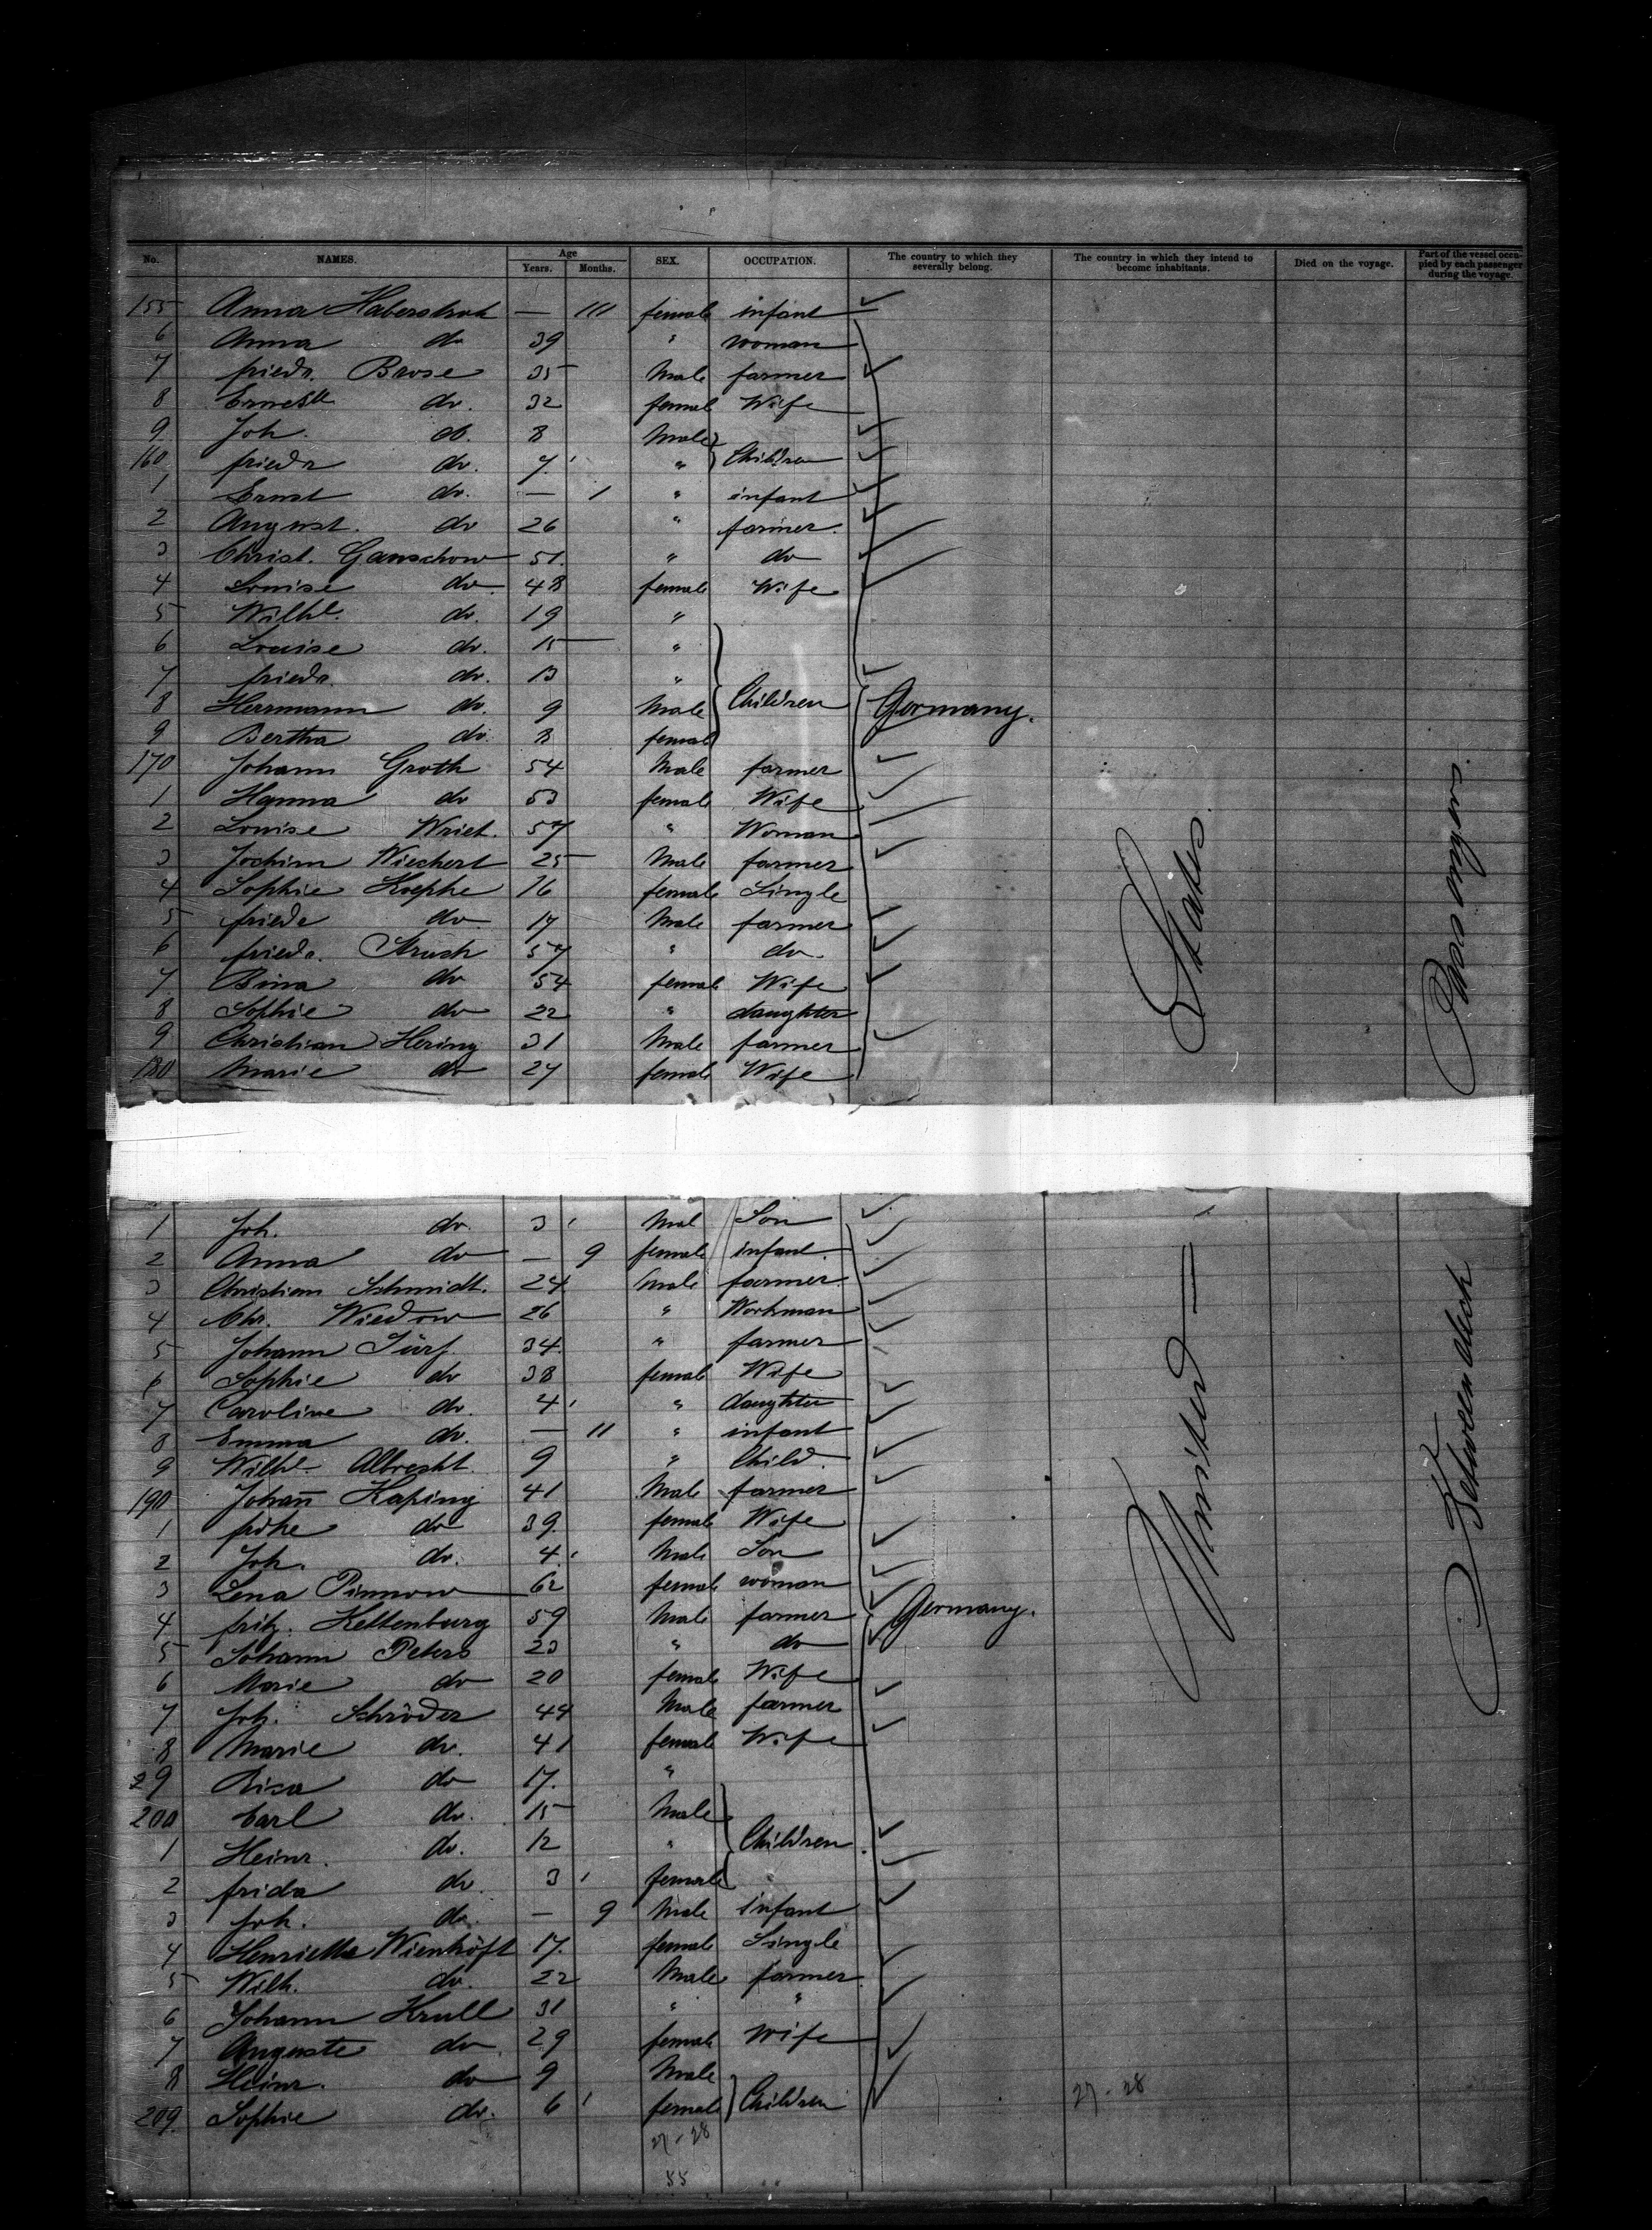 No. NAMES. Age Years. Months. SEX. OCCUPATION. The country to which they severally belong. The country in which they intend to become inhabitants. Died on the voyage. Part of the vessel occupied by each passenger during the voyage.
155 Anna — female infant
6 Anna do 39 " woman
7 friedr. Brose 35 Male farmer
8 Ernestte do. 32 female Wife
9 Joh. do. 8 Male
160 friedr do. 7 " Children
1 Ernst do. — 1 " infant
2 August. do 26 " farmer.
3 Christ. Ganschow 51. " do
4 Louise do 48 female Wife
5 Wilhe. do. 19 "
6 Louise do. 15 "
7 friedr. do. 13 "
8 Herrmann do. 9 Male Children Germany.
9 Bertha do. 8 female
170 Johann Groth 54 Male farmer
1 Hanna do 53 female Wife
2 Louise 57 " Woman
3 Jochim Wiechert 25 Male farmer
4 Sophie 16 female Single
5 friedr do 17 Male farmer
6 friedr. 57 " do.
7 Bina do 54 female Wife
8 Sophie do 22 " daughter
9 Christian Hering 31 Male farmer
180 Marie do 27 female Wife
States
Passengers.
1 Joh. do. 3 Mal Son
2 Anna do — 9 female infant
3 Christian Schmidt. 24 Male farmer
4 Chr. Wiedow 26 " Workman
5 Johann 34. " farmer
6 Sophie do 38 female Wife
7 Caroline do. 4 " daughter
8 Emma do. — 11 " infant
9 Wilhe. Albrecht. 9 " Child.
190 Johañ Kaping 41 Male farmer
1 do 39. female Wife
2 Joh. do. 4. Male Son
3 Lena Pinnow 62 female woman
4 fritz. Keltenburg 59 Male farmer Germany.
5 Johann Peters 23 " do
6 Marie do 20 female Wife
7 Joh. Schröder 44 Male farmer
8 Marie do. 41 female Wife
9 do 17. "
200 Carl do. 15 Male
1 Heinr. do. 12 " Children
2 frida do. 3 female
3 Joh. do. — 9 Male infant
4 Henriette Wienhöft 17. female Single
5 Wilh. do. 22 Male farmer
6 Johann Krull 31 " "
7 Auguste do 29 female Wife
8 Heinr. do 9 Male
209. Sophie do. 6 female Children
27-28
27-28
55
United
Between deck